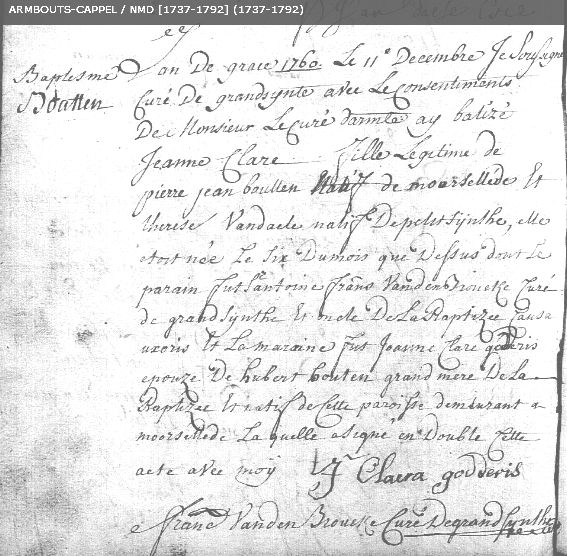 ARMBOUTS-CAPPEL / NMD [1737-1792] (1737-1792)
Baptesme
Boutten
L an De grace 1760 Le 11e Decembre Je Soussigné
Curé De grandsynte avec Le Consentiments
De Monsieur Le Curé darmte ay batizé
Jeanne Clare fille Legitime de
pierre jean boutten Natif de moorsellede Et
therese Vandaele natif De petit Synthe, elle
etoit née Le Six Du mois que Dessus dont Le
parain fut antoine frans Vanden Broucke Curé
de grand Synthe Et oncle De La Baptizee Causa
uxoris Et La maraine fut Joanne Clare godris
epouze De hubert bouten grand mere De La
Baptizee Et natif de Cette paroisse demeurant a
moorsellede La quelle a signé en Double Cette
acte avec moÿ Jn Clara godderis
franc Vanden Broucke Curé De grand Synthe